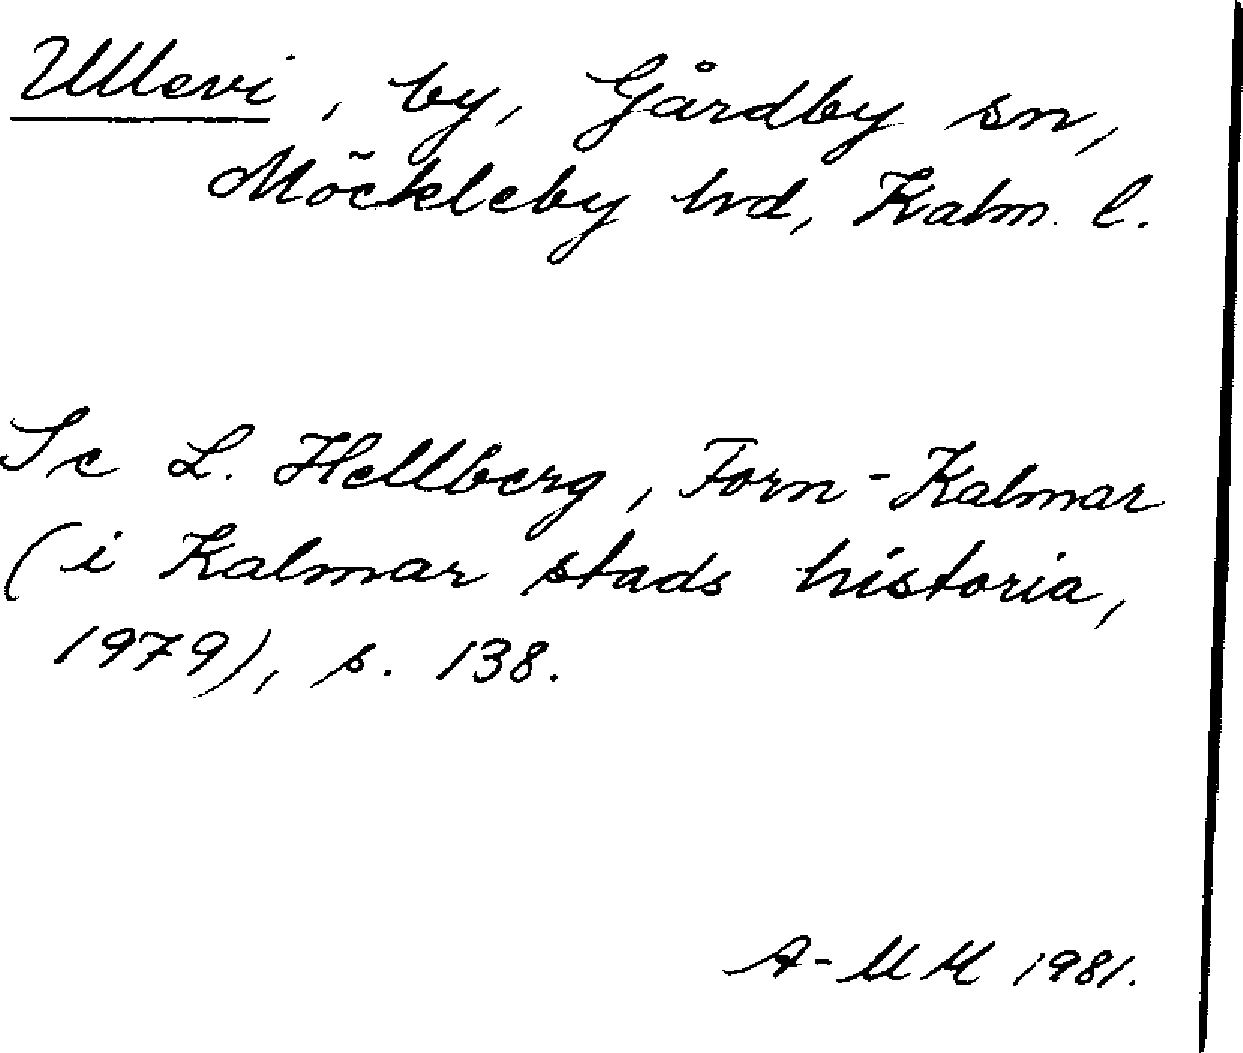 Ullevi, by, Gårdby sn,
Möckleby hd, Kalm. l.
Se L. Hellberg, Forn-Kalmar
(i Kalmar stads historia,
1979), s. 138.
A-MM 1981.